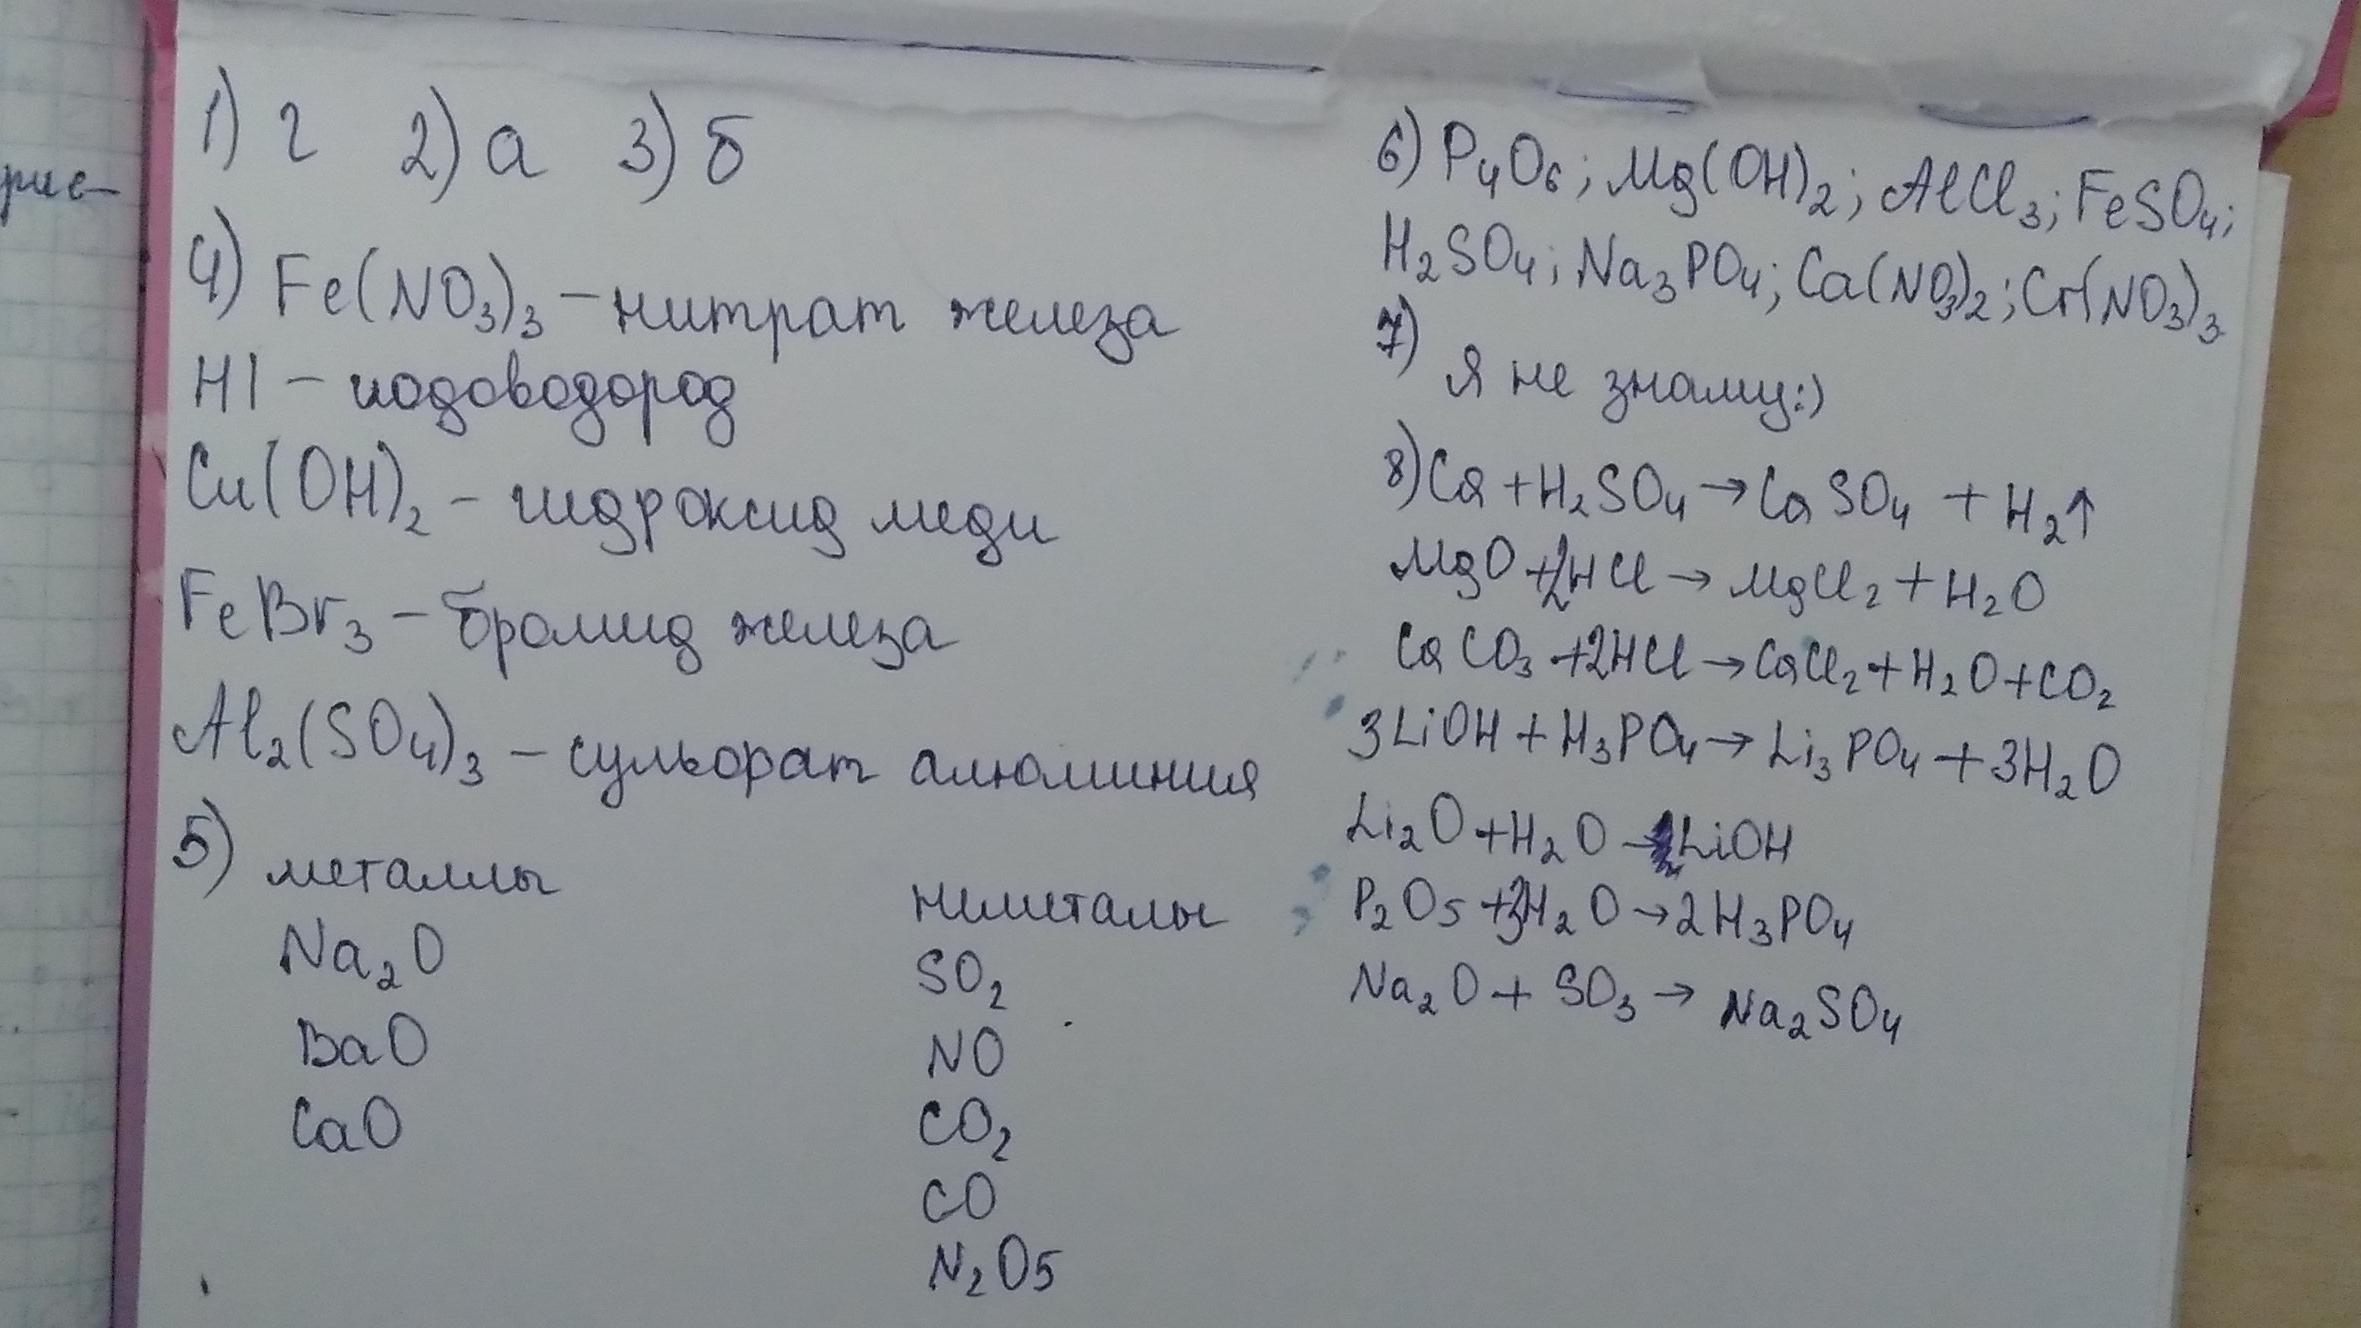 рис-
1) г 2) а 3) б
4) Fe(NO₃)₃ – нитрат железа
HI – иодоводород
Cu(OH)₂ – гидроксид меди
FeBr₃ – бромид железа
Al₂(SO₄)₃ – сульфрат алюминия
5) металлы неметалы
Na₂O SO₂
BaO NO
CaO CO₂
CO
N₂O5
6) P₄O₆; Mg(OH)₂; AlCl₃; FeSO₄;
H₂SO₄; Na₃PO₄; Ca(NO₃)₂; Cr(NO₃)₃
7) Я не знаму:)
8) Ca + H₂SO₄ → CaSO₄ + H₂↑
MgO + 2HCl → MgCl₂ + H₂O
CaCO₃ + 2HCl → CaCl₂ + H₂O + CO₂
3LiOH + H₃PO₄ → Li₃PO₄ + 3H₂O
Li₂O + H₂O → 2LiOH
P₂O5 + 3H₂O → 2H₃PO₄
Na₂O + SO₃ → Na₂SO₄